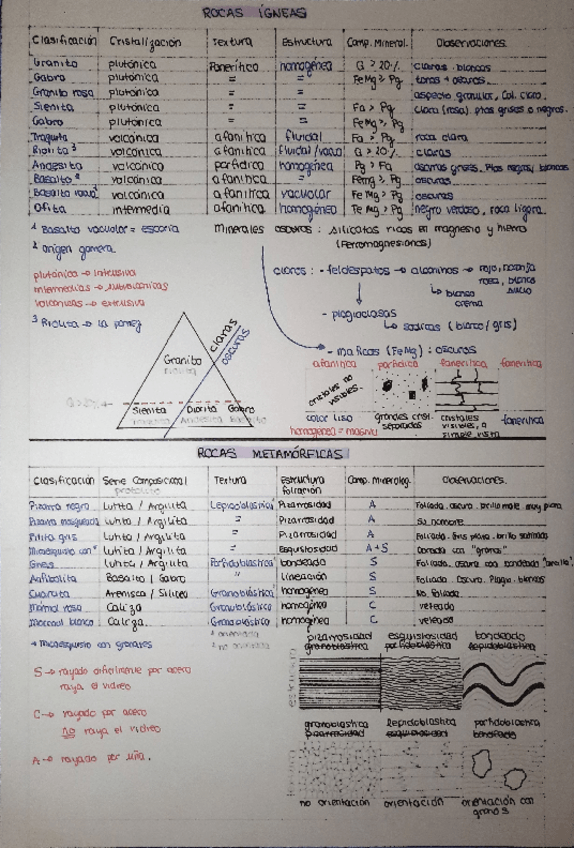 ROCAS ÍGNEAS
Clasificación Cristalización Textura Estructura Comp. Mineral. Observaciones
Granito plutónica Fanerítico homogénea Q > 20% claras. blancas
Gabro plutónica = = FeMg > Pg tonos + oscuros
Granito rosa plutónica = = aspecto granular, Col. claro
Sienita plutónica = = Fa > Pg Clara (rosa). Ptos grises o negros.
Gabro plutónica = = FeMg > Pg
Traquita volcánica afanítica fluidal Fa > Pg roca clara
Riolita ³ volcánica afanítica fluidal/vacuo Q > 20% claras
Andesita volcánica porfídica homogénea Pg > Fa
Basalto ² volcánica afanítica = FeMg > Pg oscuras
Basalto volcánica afanítica vacuolar Fe Mg > Pg oscuras
Ofita intermedia afanítica homogénea Fe Mg > Pg negro verdoso, roca ligera
1 Basalto vacuolar = escoria
minerales oscuros: silicatos ricos en magnesio y hierro
(Ferromagnesianos)
2 origen gomera
claros: - feldespatos → alcalinos → rojo, naranja
rosa, blanco
sucio
↳ blanco
crema
plutónica → intrusiva
intermedias → subvolcánicas
volcánicas → extrusiva
- plagioclasas
↳ sódicas (blanco/gris)
3 Riolita →
- máficas (FeMg): oscuros
claras
oscuras
Granito
riolita
Sienita Diorita Gabro
afanítica porfídica fanerítica fanerítica
cristales no
visibles.
color liso grandes crist. separados cristales visibles, a simple vista fanerítica
ROCAS METAMÓRFICAS
Clasificación Serie Composicional Textura Estructura Comp. Mineralog. Observaciones.
protolito foliación
Pizarra negra Lutita / Argilita Lepidoblástica Pizarrosidad A Foliada. oscura. brillo mate. muy plana
Pizarra mosqueada Lutita / Argilita = Pizarrosidad A Su nombre
Filita gris Lutita / Argilita = Pizarrosidad A Foliada. Gris plana. brillo satinado
Micaesquisto con Lutita / Argilita = Esquistosidad A+S Dorada con "granos"
Gneis Lutita / Argilita Porfidoblástica bandeado S Foliada. oscura con bandeado
Anfibolita Basalto / Gabro = lineación S Foliada. Oscura. Plagio. blancas
Cuarcita Arenisca / Silícea Granoblástica homogénea S No foliada
Mármol rosa Caliza Granoblástica homogénea C veteado
Mármol blanco Caliza Granoblástica homogénea C veteado
* orientada
* no orientada
* Micaesquisto con granates
pizarrosidad esquistosidad bandeado
granoblástica porfidoblástica lepidoblástica
estructura
S → rayado difícilmente por acero
raya el vidrio
C → rayado por acero
no raya el vidrio
A → rayado por uña.
granoblástica lepidoblástica porfidoblástica
pizarrosidad esquistosidad bandeado
no orientación orientación orientación con
granos